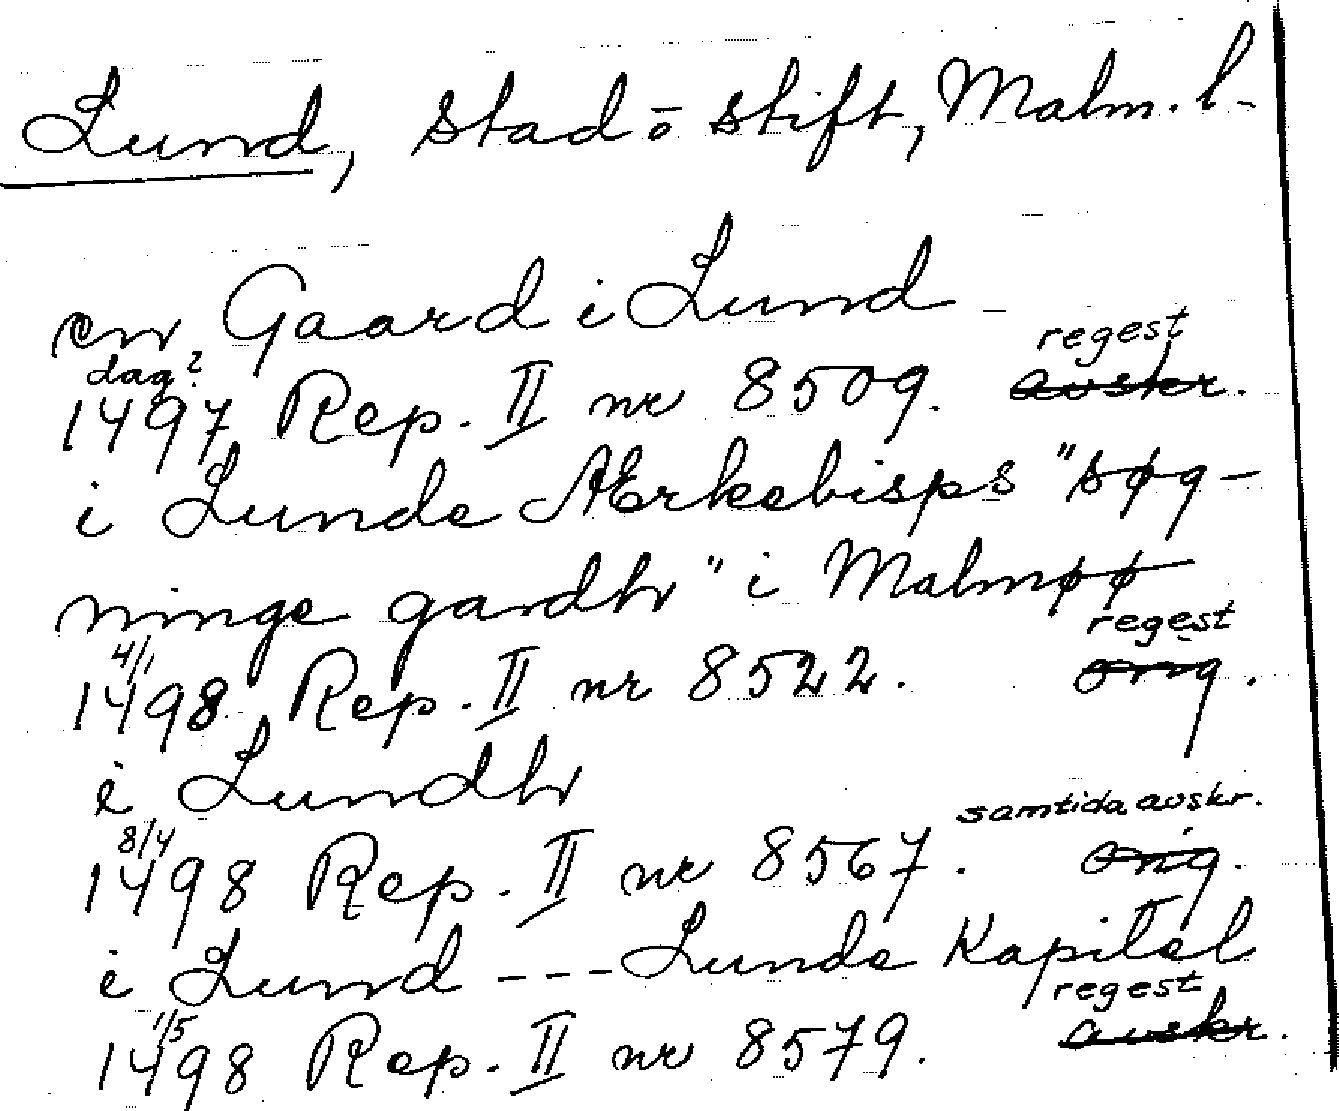 Lund, stad o stift, Malm. l.
en Gaard i Lund
dag? regest
1497 Rep. II nr 8509. avskr.
i Lunde Ærkebisps "søg-
ninge gardh" i Malmøø
4/1 regest
1498 Rep. II nr 8522. orig.
i Lundh
8/4 samtida avskr.
1498 Rep. II nr 8567. orig.
i Lund --- Lunde Kapitel
1/5 regest
1498 Rep. II nr 8579. avskr.